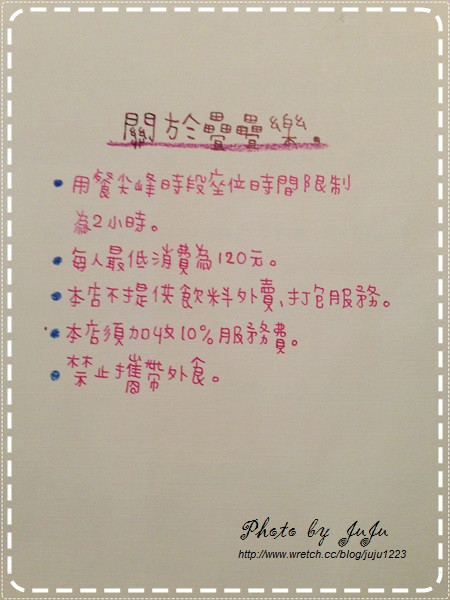 關於疊疊樂.
• 用餐尖峰時段座位時間限制
為2小時。
• 每人最低消費為120元。
• 本店不提供飲料外賣、打包服務。
• 本店須加收10%服務費。
• 禁止攜帶外食。
Photo by JuJu
http://www.wretch.cc/blog/juju1223